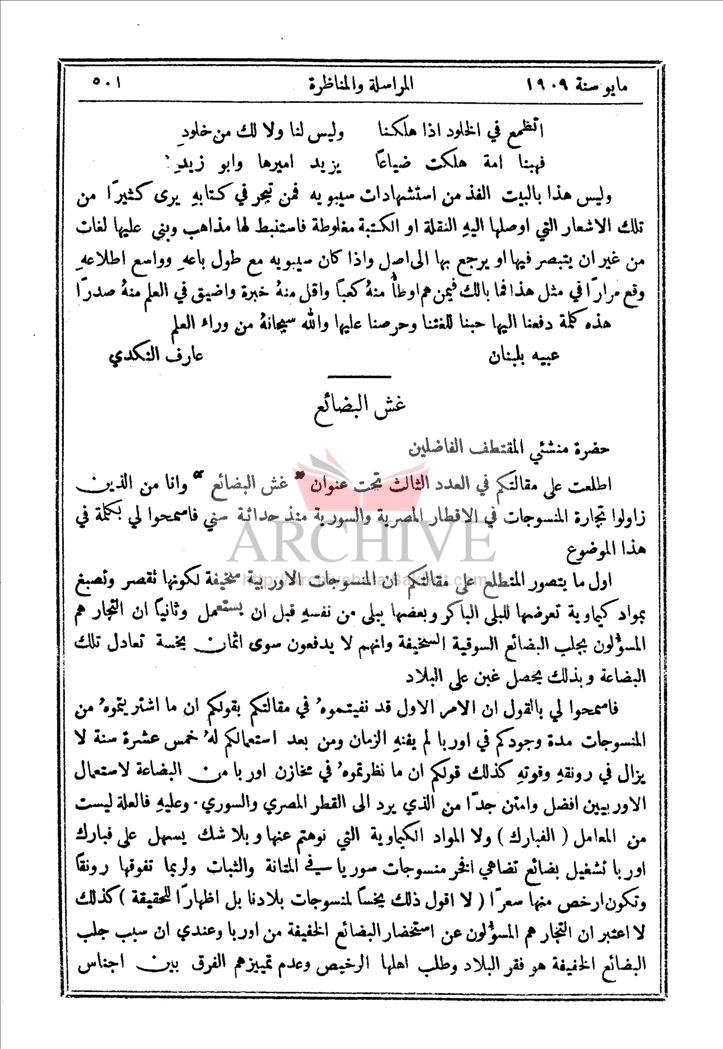 مايو سنة ١٩٠٩ المراسلة والمناظرة ٥٠١
اتطمع في الخلود اذا هلكنا وليس لنا ولا لك من خلودِ
فهبنا امة هلكت ضياعًا يزيد اميرها وابو زيدِ
وليس هذا بالبيت الفذ من استشهادات سيبويه فمن تبحر في كتابهِ يرى كثيرًا من
تلك الاشعار التي اوصلها اليهِ النقلة او الكتبة مغلوطة فاستنبط لها مذاهب وبنى عليها لغات
من غير ان يتبصر فيها او يرجع بها الى اصل واذا كان سيبويه مع طول باعهِ وواسع اطلاعهِ
وقع مرارًا في مثل هذا فما بالك فيمن هم اوطأُ منهُ كعبًا واقل منهُ خبرة واضيق في العلم منهُ صدرًا
هذه كلمة دفعنا اليها حبنا للغتنا وحرصنا عليها والله سبحانهُ من وراء العلم
عبيه بلبنان عارف النكدي
غش البضائع
حضرة منشئي المقتطف الفاضلين
اطلعت على مقالتكم في العدد الثالث تحت عنوان " غش البضائع " وانا من الذين
زاولوا تجارة المنسوجات في الاقطار المصرية والسورية منذ حداثة سني فاسمحوا لي بكلمة في
هذا الموضوع
ARCHIVE
اول ما يتصور المتطلع على مقالتكم ان المنسوجات الاوربية سخيفة لكونها تقصر وتصبغ
بمواد كيماوية تعرضها للبلى الباكر وبعضها يبلى من نفسهِ قبل ان يستعمل وثانيًا ان التجار هم
المسؤلون بجلب البضائع السوقية السخيفة وانهم لا يدفعون سوى اثمان بخسة تعادل تلك
البضاعة وبذلك يحصل غبن على البلاد
فاسمحوا لي بالقول ان الامر الاول قد نفيتموهُ في مقالتكم بقولكم ان ما اشتريتموهُ من
المنسوجات مدة وجودكم في اوربا لم يفنهِ الزمان ومن بعد استعمالكم لهُ خمس عشرة سنة لا
يزال في رونقهِ وقوتهِ كذلك قولكم ان ما نظرتموهُ في مخازن اوربا من البضاعة لاستعمال
الاوربيين افضل وامتن جدًا من الذي يرد الى القطر المصري والسوري . وعليهِ فالعلة ليست
من المعامل ( الفبارك ) ولا المواد الكيماوية التي نوهتم عنها وبلا شك يسهل على فبارك
اوربا تشغيل بضائع تضاهي الخر منسوجات سوريا في المتانة والثبات ولربما تفوقها رونقًا
وتكون ارخص منها سعرًا ( لا اقول ذلك بخسًا لمنسوجات بلادنا بل اظهارًا للحقيقة ) كذلك
لا اعتبر ان التجار هم المسؤلون عن استحضار البضائع الخفيفة من اوربا وعندي ان سبب جلب
البضائع الخفيفة هو فقر البلاد وطلب اهلها الرخيص وعدم تمييزهم الفرق بين اجناس